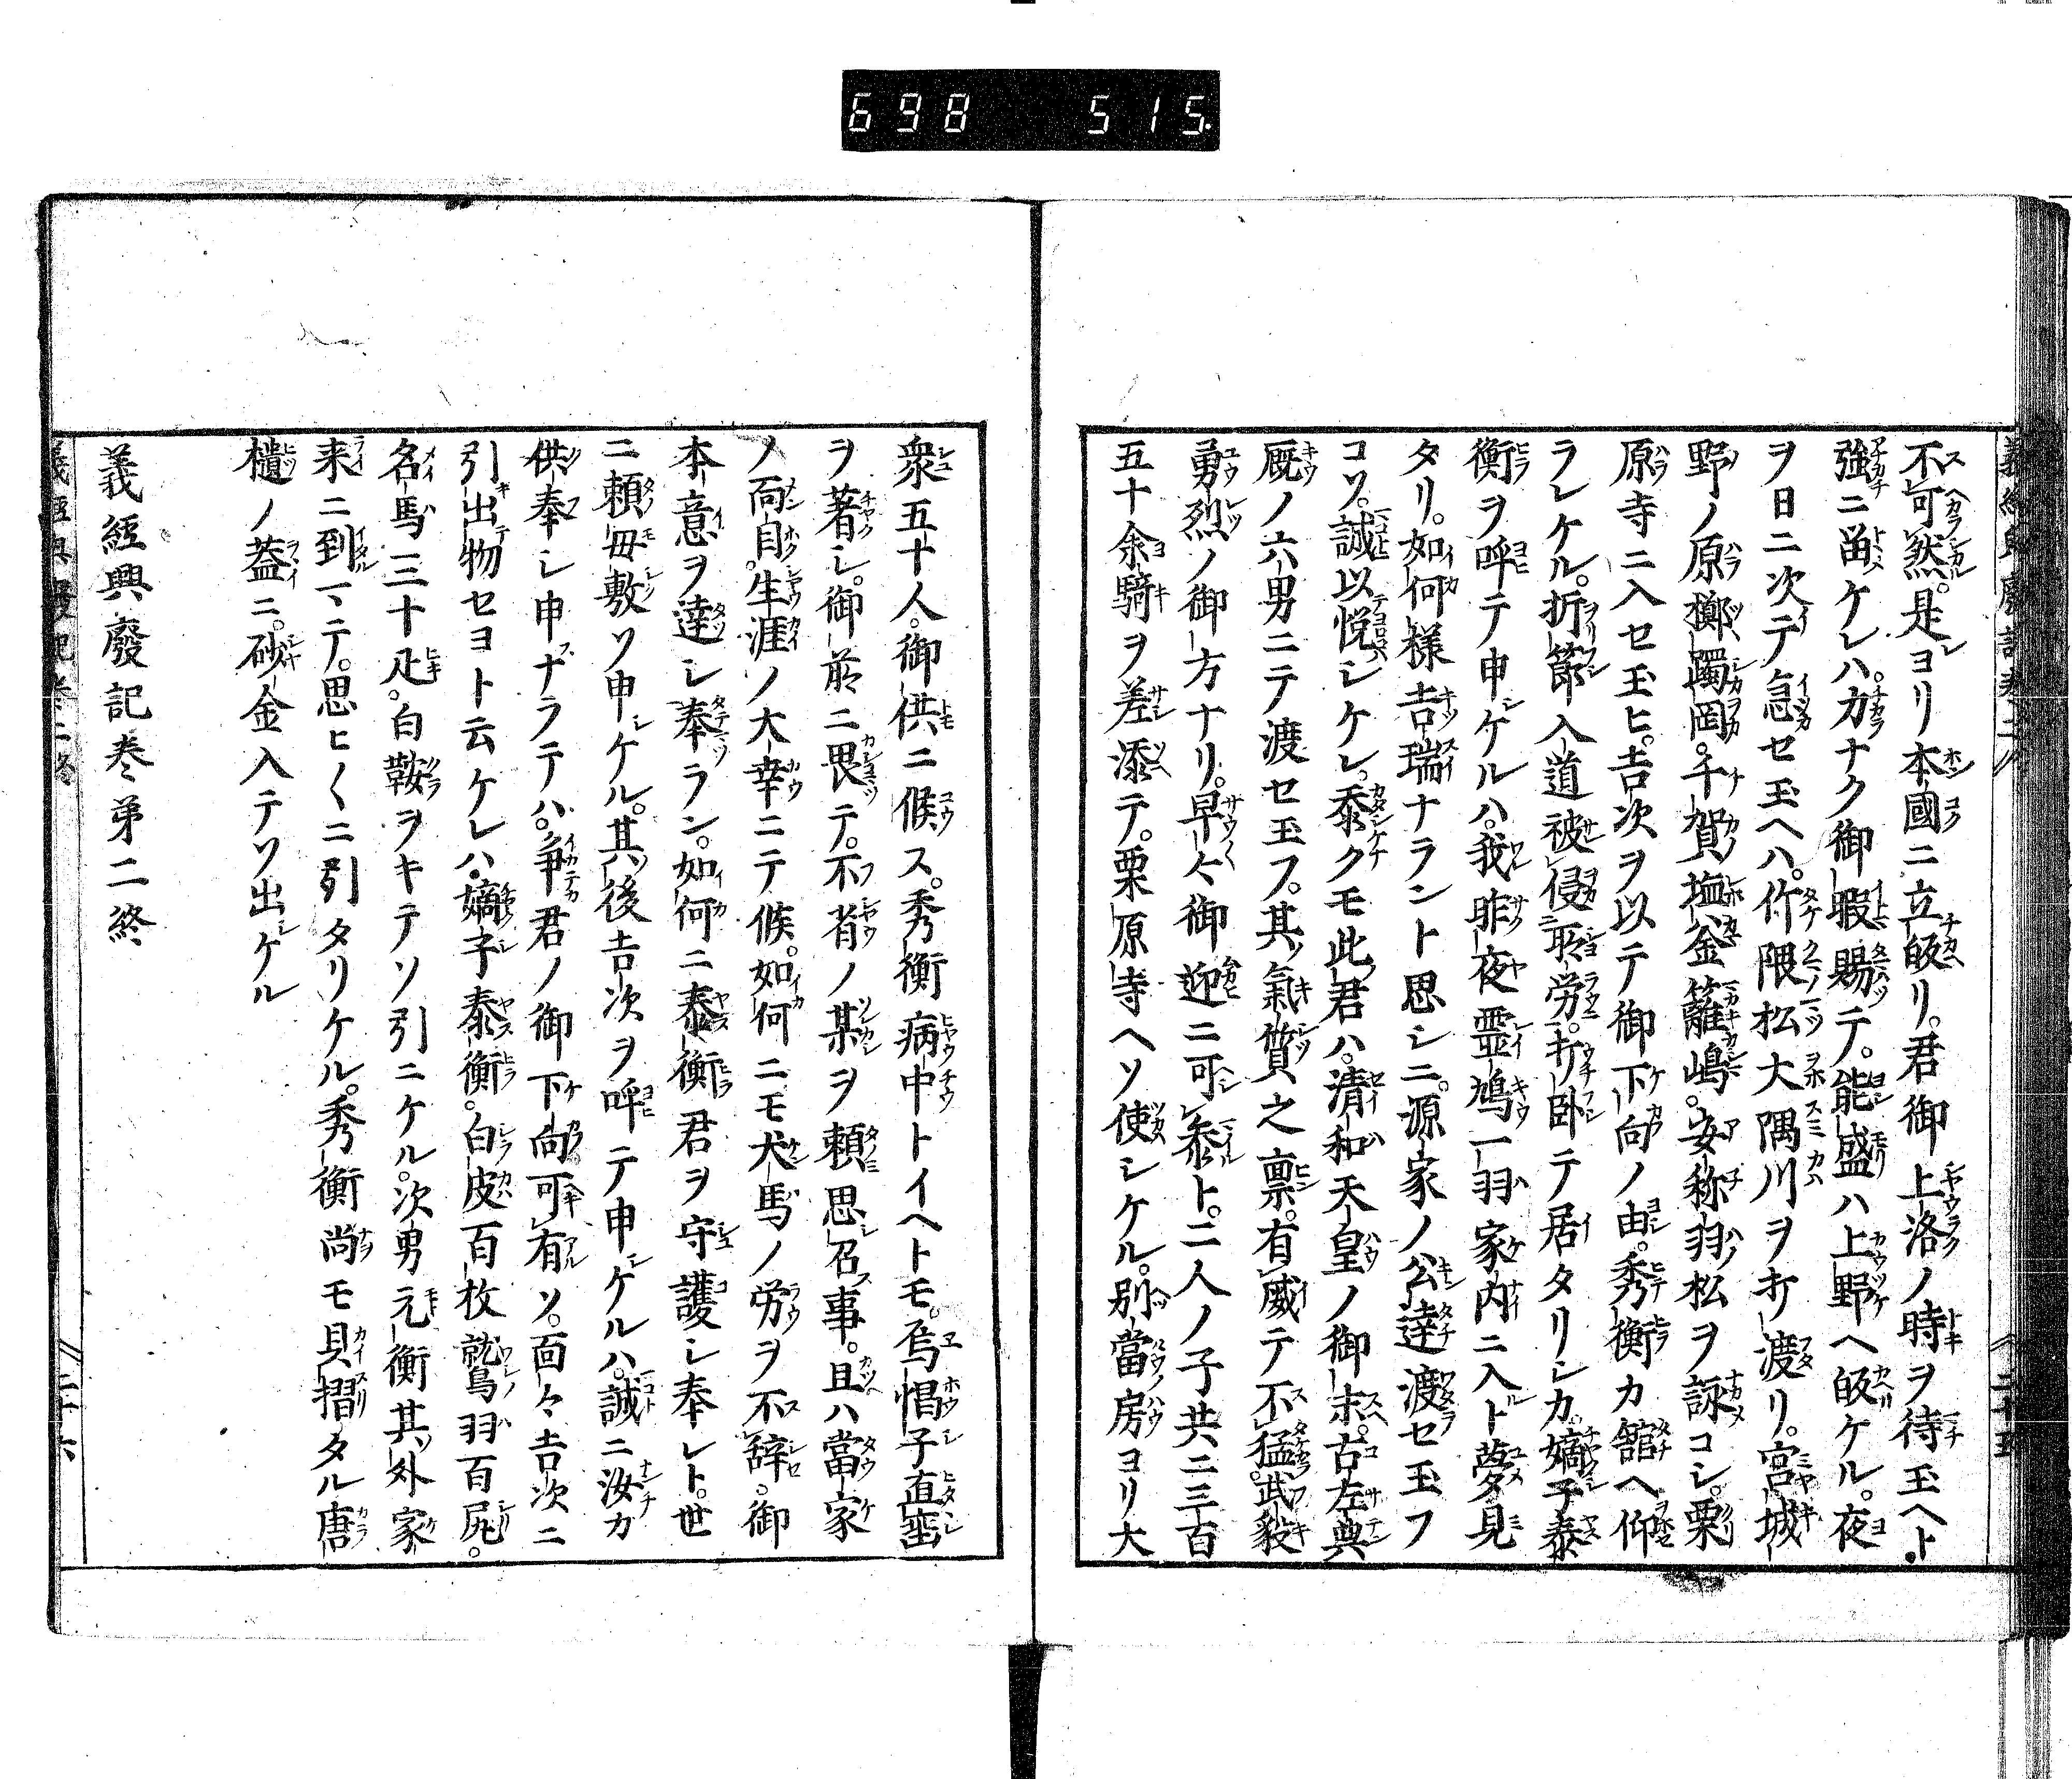 698 515
不可然。是ヨリ本國ニ立皈リ。君御上洛ノ時ヲ待玉ヘト。
強ニ留ケレハ。力ナク御暇賜テ。能盛ハ上野ヘ皈ケル。夜
ヲ日ニ次テ急セ玉ヘハ。竹隈松大隅川ヲ打渡リ。宮城
野ノ原擲躅岡。千賀塩釜籬嶋。安称羽松ヲ詠コシ。栗
原寺ニ入セ玉ヒ。吉次ヲ以テ御下向ノ由。秀衡カ舘ヘ仰
ラレケル。折節入道被侵所労。打臥テ居タリシカ。嫡子泰
衡ヲ呼テ申ケルハ。我昨夜霊鳩一羽家内ニ入ト夢見
タリ。如何樣吉瑞ナラント思シニ。源家ノ公達渡セ玉フ
コソ。誠以悦シケレ。忝クモ此君ハ。清和天皇ノ御末。古左典
厩ノ六男ニテ渡セ玉フ。其氣質之稟。有威テ不猛。武毅
勇烈ノ御方ナリ。早々御迎ニ可参ト。二人ノ子共ニ三百
五十余騎ヲ差添テ。栗原寺ヘソ使シケル。別當房ヨリ大
衆五十人。御供ニ候ス。秀衡病中トイヘトモ。烏帽子直垂
ヲ著シ。御前ニ畏テ。不肖ノ某ヲ頼思召事。且ハ當家
ノ面目。生涯ノ大幸ニテ候。如何ニモ犬馬ノ労ヲ不辞。御
本意ヲ達シ奉ラン。如何ニ泰衡君ヲ守護シ奉レト。世
ニ頼毋敷ソ申ケル。其後吉次ヲ呼テ申ケルハ。誠ニ汝カ
供奉シ申ナラテハ。爭君ノ御下向可有ソ。面々吉次ニ
引出物セヨト云ケレハ。嫡子泰衡。白皮百枚鷲羽百尻。
名馬三十疋。白鞍ヲキテソ引ニケル。次男元衡其外家
来ニ到マテ。思ヒ〱ニ引タリケル。秀衡尚モ貝摺タル唐
櫃ノ蓋ニ。砂金入テソ出ケル
義經興廢記巻第二終